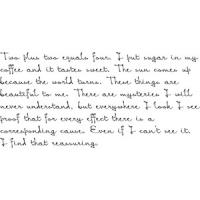 Two plus two equals four. I put sugar in my
coffee and it tastes sweet. The sun comes up
because the world turns. These things are
beautiful to me. There are mysteries I will
never understand, but everywhere I look I see
proof that for every effect there is a
corresponding cause. Even if I can't see it.
I find that reassuring.